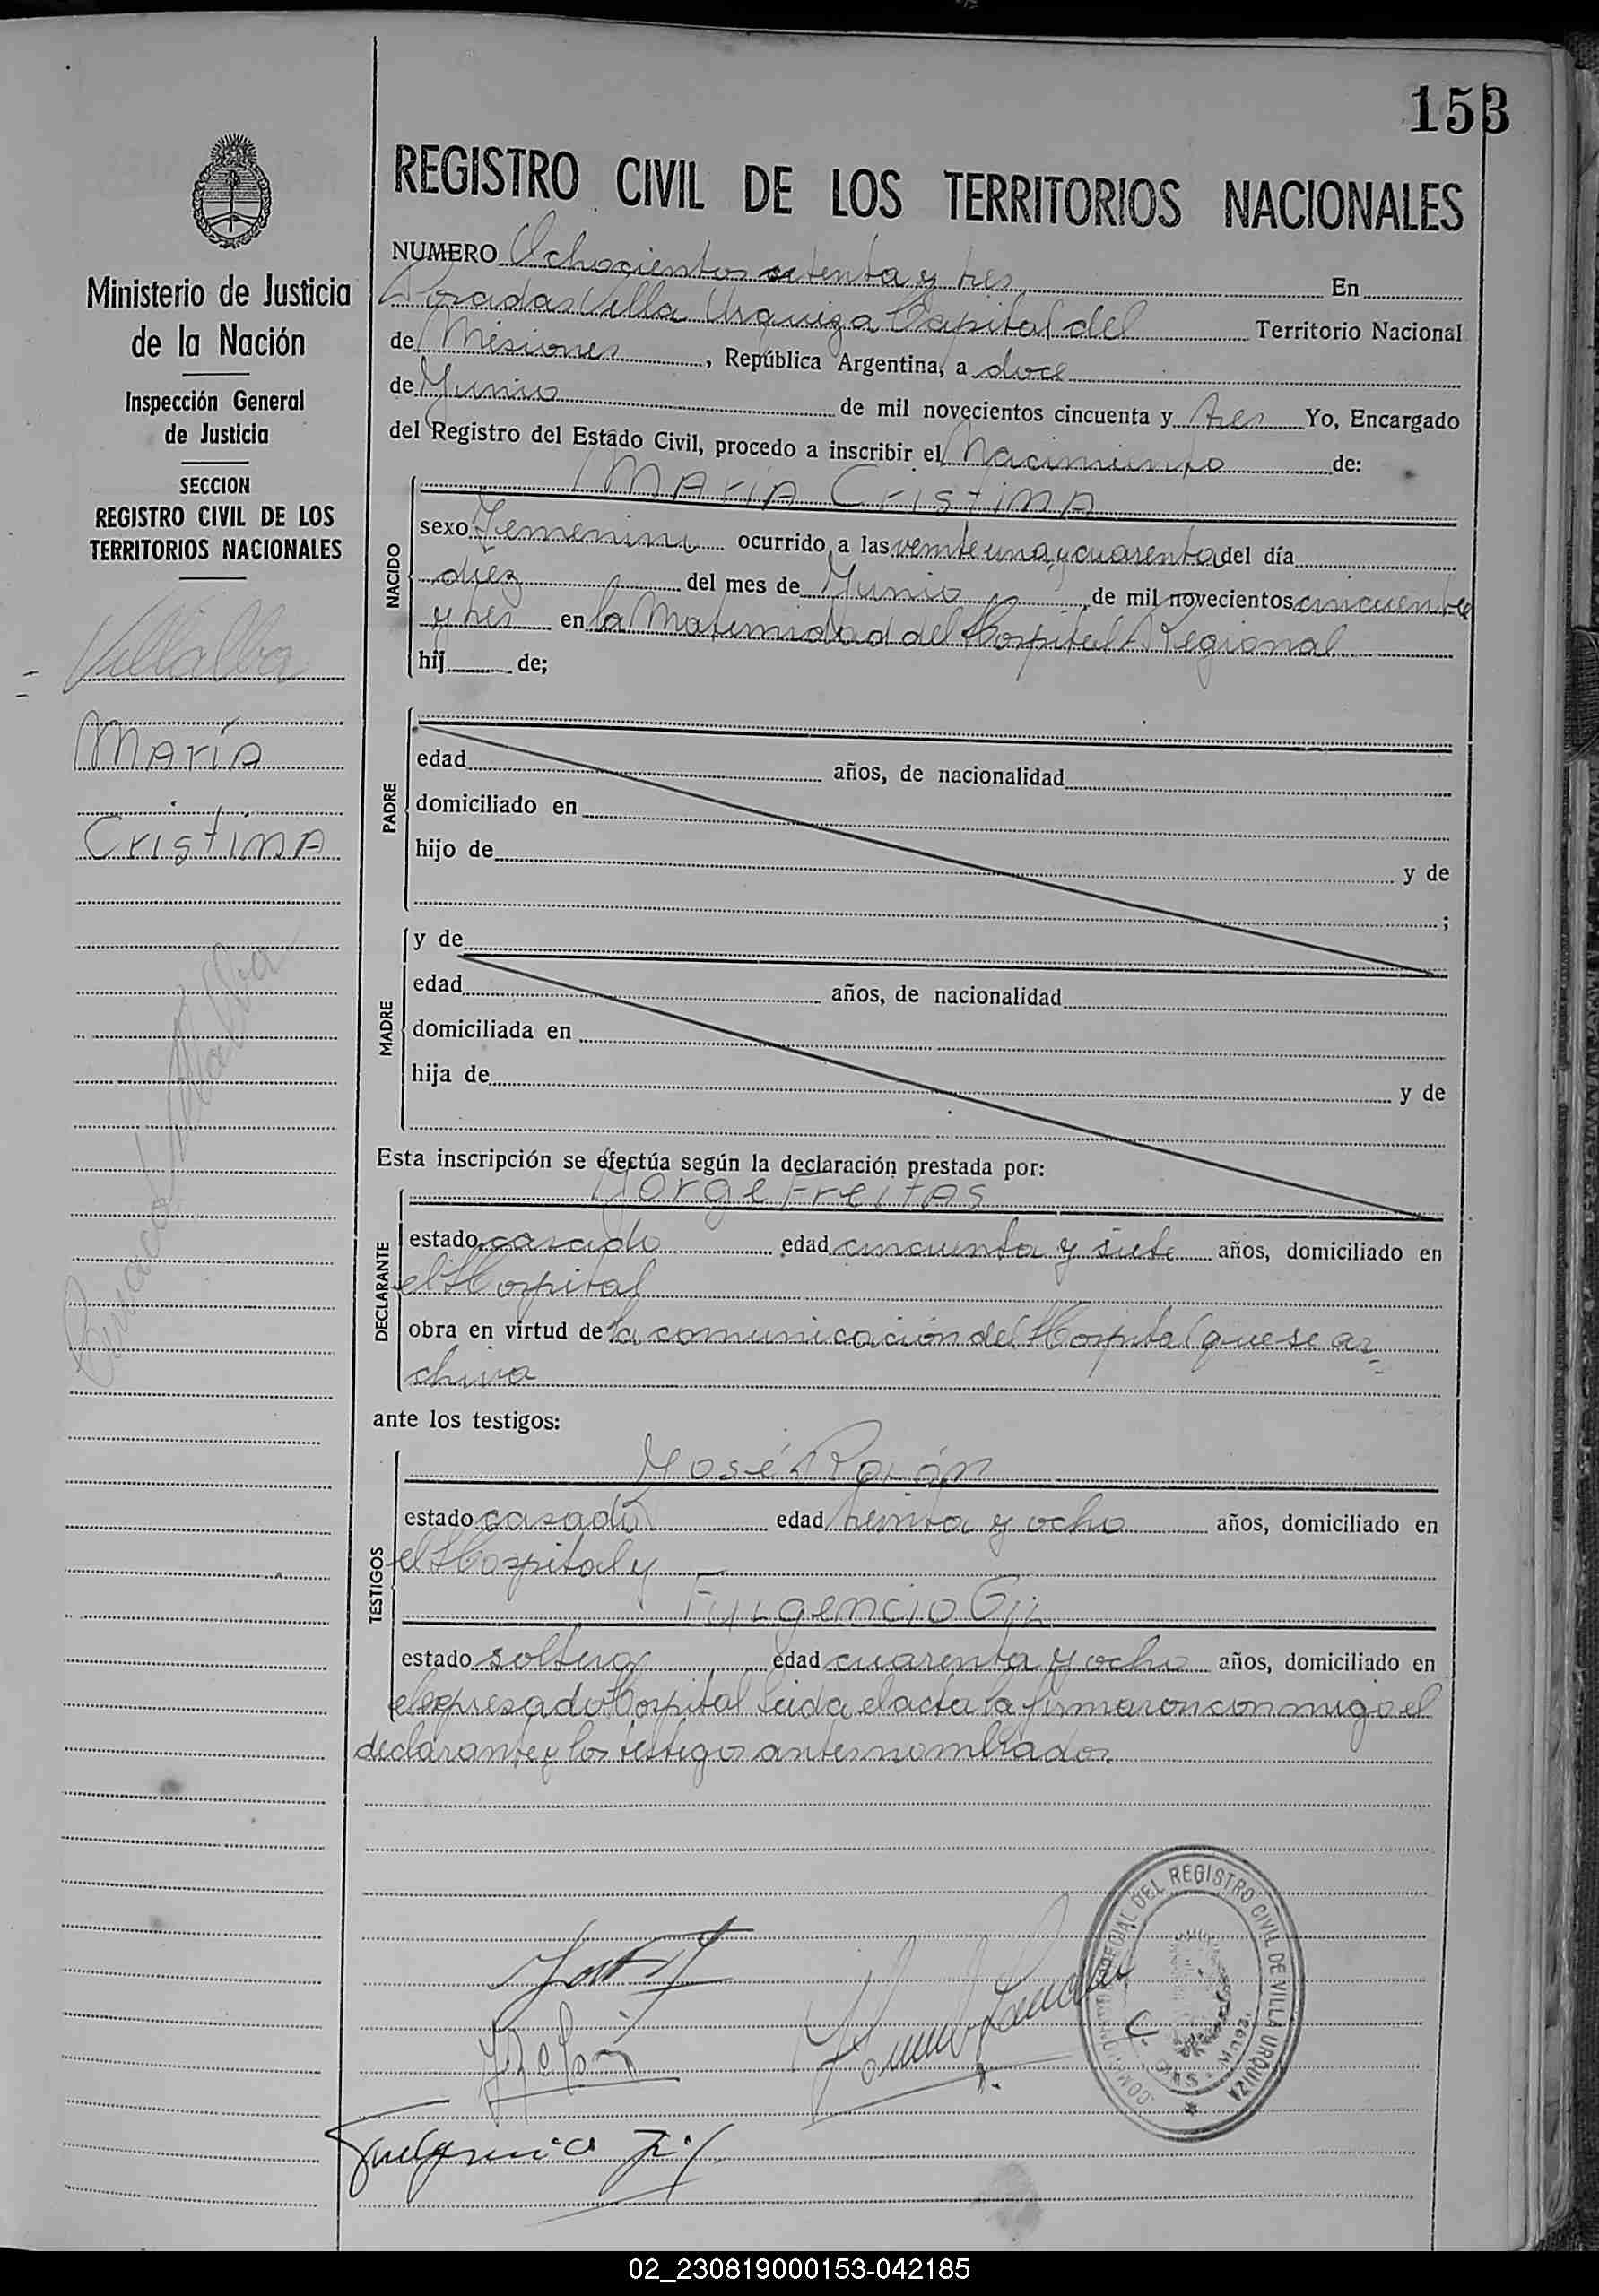 153
REGISTRO CIVIL DE LOS TERRITORIOS NACIONALES
Ministerio de Justicia
de la Nación
Inspección General
de Justicia
SECCION
REGISTRO CIVIL DE LOS
TERRITORIOS NACIONALES
Villalba
María
Cristina
Villalba
NUMERO Ochocientos setenta y tres En
Posadas Villa Urquiza Capital del Territorio Nacional
de Misiones, República Argentina, a doce
de Junio de mil novecientos cincuenta y tres Yo, Encargado
del Registro del Estado Civil, procedo a inscribir el Nacimiento de:
NACIDO
María Cristina
sexo Femenino ocurrido a las veinte una y cuarenta del día
diez del mes de Junio de mil novecientos cincuenta
y tres en la Maternidad del Hospital Regional
hij de;
PADRE
edad años, de nacionalidad
domiciliado en
hijo de y de
;
MADRE
y de
edad años, de nacionalidad
domiciliada en
hija de y de
Esta inscripción se efectúa según la declaración prestada por:
DECLARANTE
Jorge Freitas
estado casado edad cincuenta y siete años, domiciliado en
el Hospital
obra en virtud de la comunicación del Hospital que se ar-
chiva
ante los testigos:
TESTIGOS
José Rolón
estado casado edad treinta y ocho años, domiciliado en
el Hospital y
Fulgencio Gil
estado soltero edad cuarenta y ocho años, domiciliado en
el expresado Hospital Leida el acta la firmaron conmigo el
declarante y los testigos antes nombrados.
Fulgencio Gil
DEL REGISTRO CIVIL DE VILLA URQUIZA
02_230819000153-042185